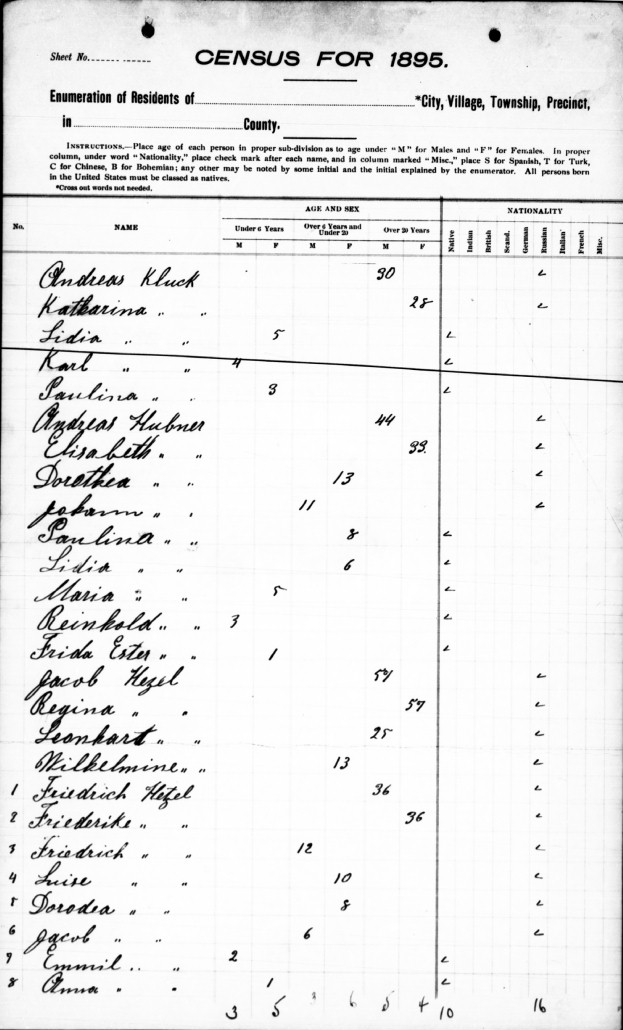 Sheet No.
CENSUS FOR 1895.
Enumeration of Residents of *City, Village, Township, Precinct,
in County.
INSTRUCTIONS.—Place age of each person in proper sub-division as to age under "M" for Males and "F" for Females. In proper
column, under word "Nationality," place check mark after each name, and in column marked "Misc.," place S for Spanish, T for Turk,
C for Chinese, B for Bohemian; any other may be noted by some initial and the initial explained by the enumerator. All persons born
in the United States must be classed as natives.
*Cross out words not needed.
No. NAME AGE AND SEX NATIONALITY
Under 6 Years Over 6 Years and Under 20 Over 20 Years Native Indian British Scand. German Russian Italian French Misc.
M F M F M F
Andreas Kluck 30 ✓
Katharina " " 28 ✓
Lidia " " 5 ✓
Karl " " 4 ✓
Paulina " " 3 ✓
Andreas Hubner 44 ✓
Elisabeth " " 33 ✓
Dorothea " " 13 ✓
Johann " " 11 ✓
Paulina " " 8 ✓
Lidia " " 6 ✓
Maria " " 5 ✓
Reinhold " " 3 ✓
Frida Ester " " 1 ✓
Jacob Hezel ✓
Regina " " 57 ✓
Leonhart " " 25 ✓
Wilhelmine " " 13 ✓
1 Friedrich Hezel 36 ✓
2 Friederike " " 36 ✓
3 Friedrich " " 12 ✓
4 Luise " " 10 ✓
5 Dorodea " " 8 ✓
6 Jacob " " 6 ✓
7 Emmil " " 2 ✓
8 Anna " " 1 ✓
3 5 3 6 5 4 10 16